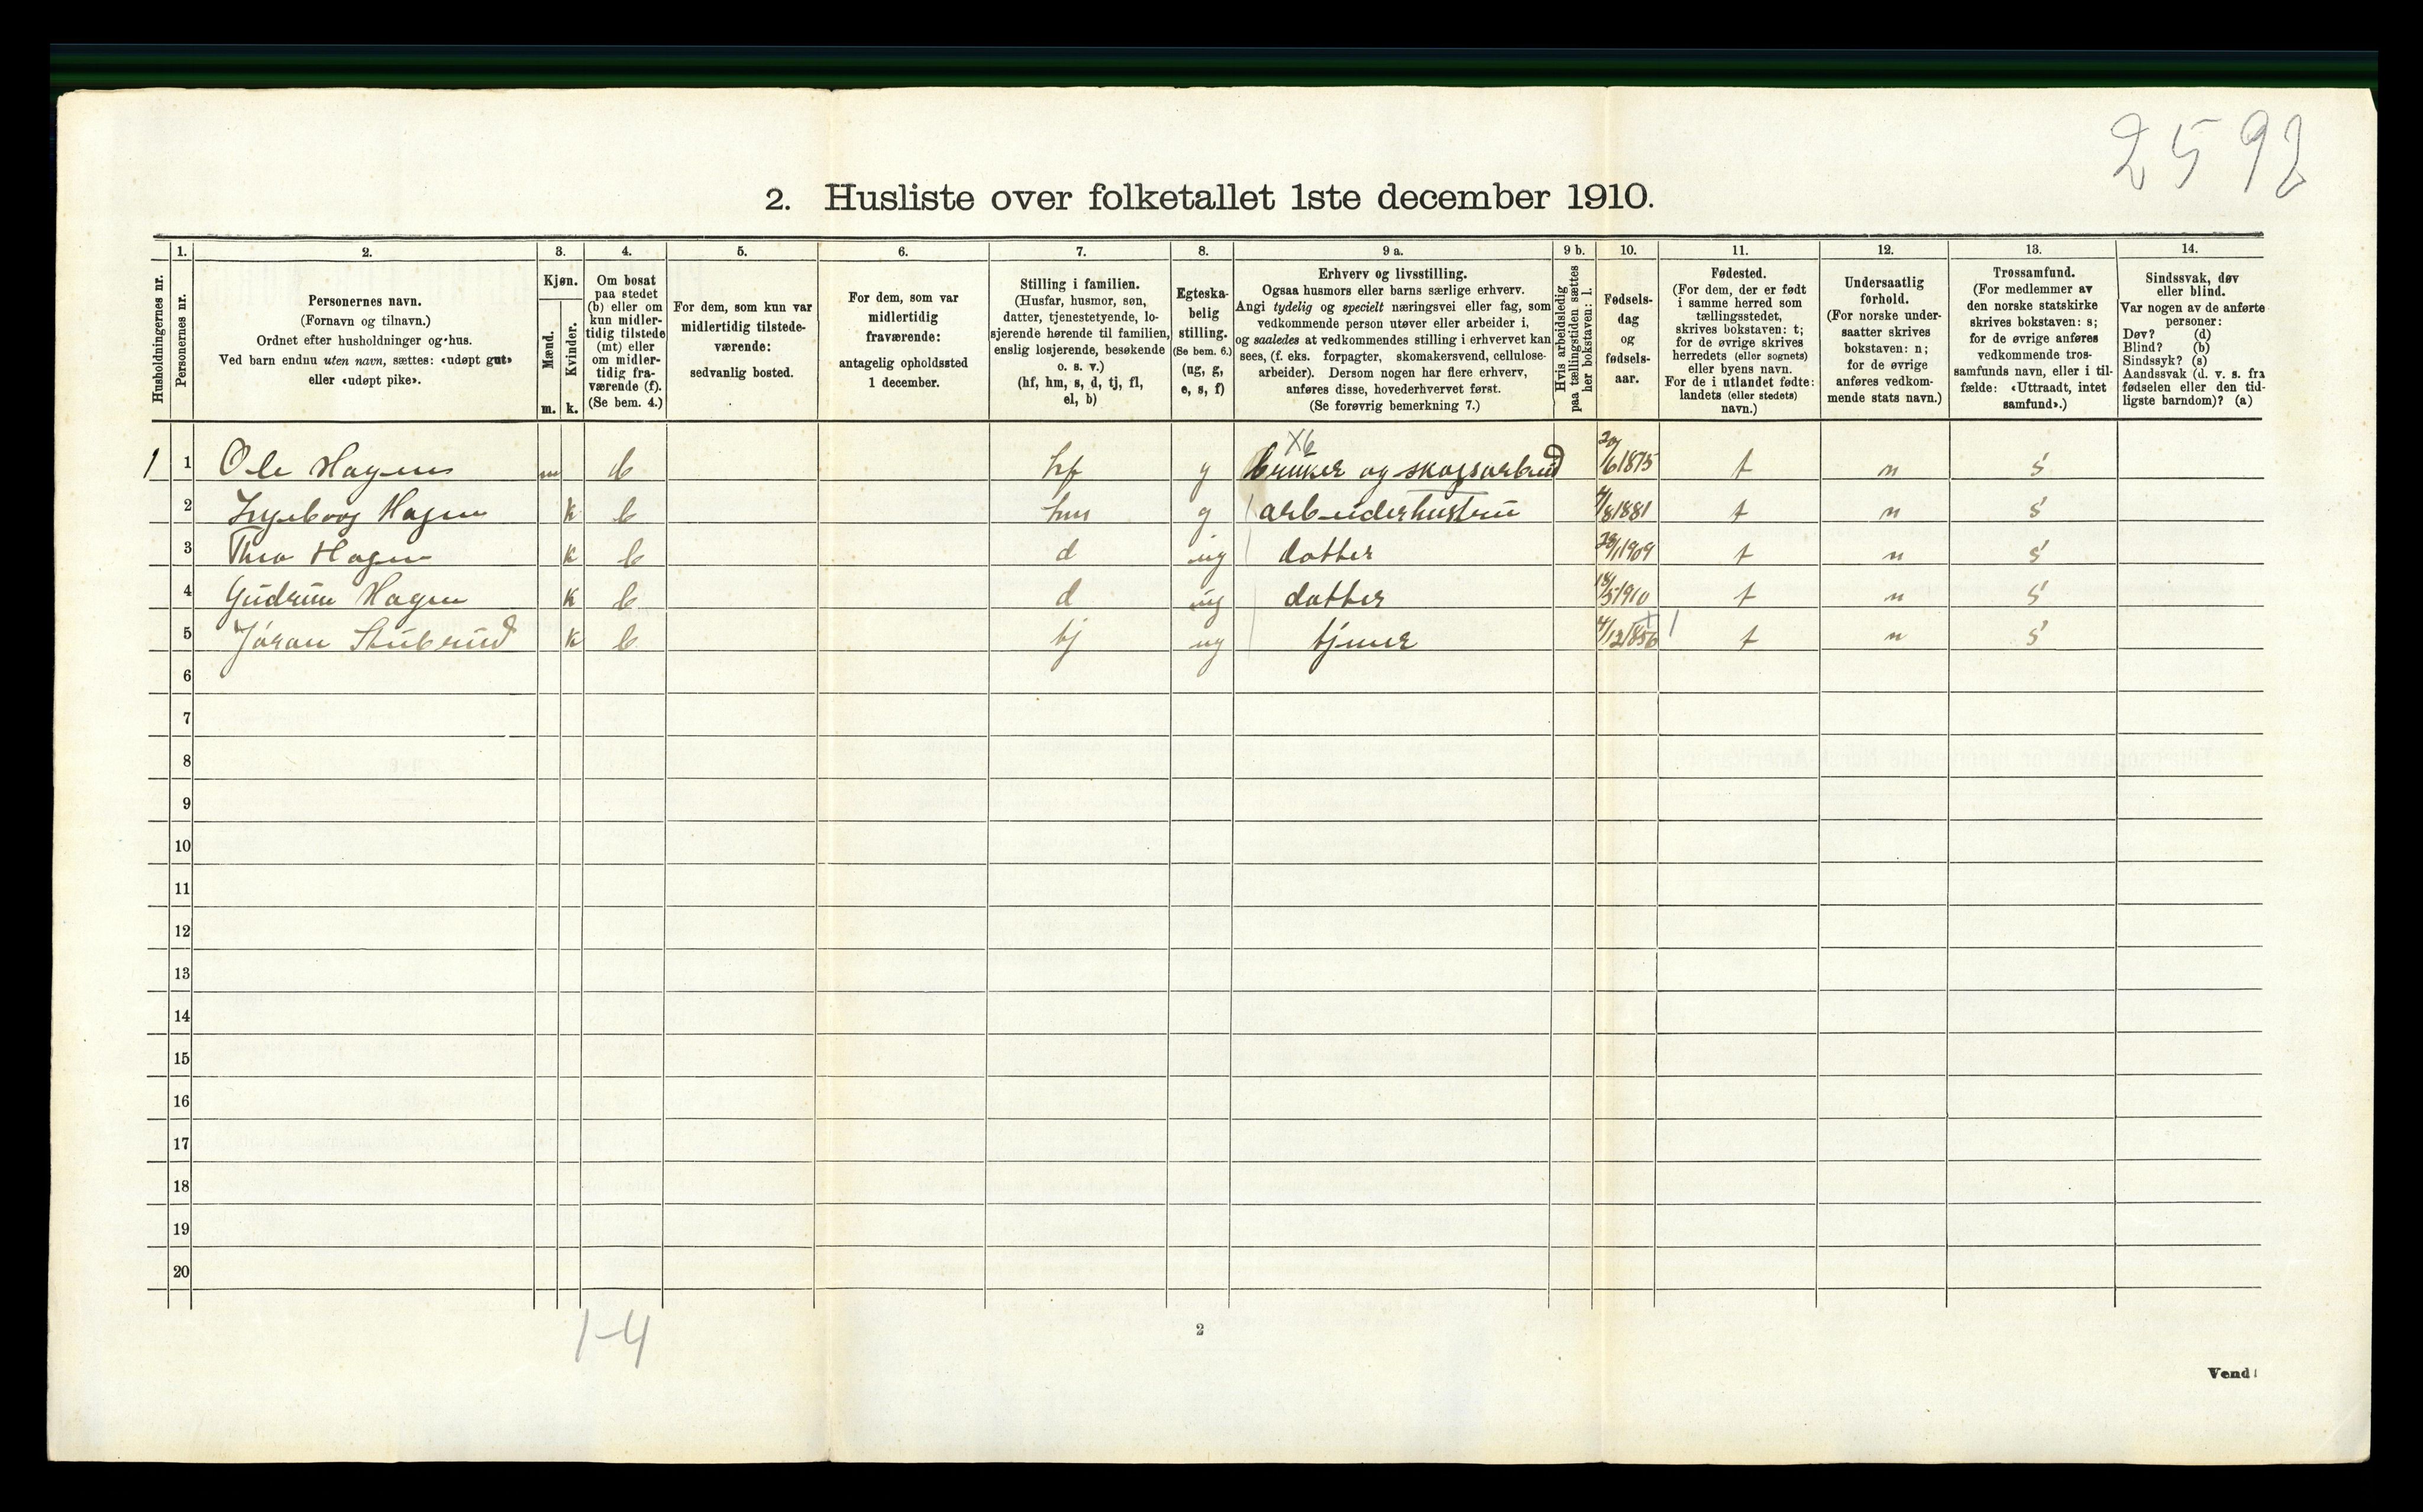 2592
2. Husliste over folketallet 1ste december 1910.
Husholdningernes nr.
1. Personernes nr.
2. Personernes navn. (Fornavn og tilnavn.) Ordnet efter husholdninger og hus. Ved barn endnu uten navn, sættes: «udøpt gut» eller «udøpt pike».
3. Kjøn. Mænd. m. Kvinder. k.
4. Om bosat paa stedet (b) eller om kun midler- tidig tilstede (mt) eller om midler- tidig fra- værende (f). (Se bem. 4.)
5. For dem, som kun var midlertidig tilstede- værende: sedvanlig bosted.
6. For dem, som var midlertidig fraværende: antagelig opholdssted 1 december.
7. Stilling i familien. (Husfar, husmor, søn, datter, tjenestetyende, lo- sjerende hørende til familien, enslig losjerende, besøkende o. s. v.) (hf, hm, s, d, tj, fl, el, b)
8. Egteska- belig stilling. (Se bem. 6.) (ug, g, e, s, f)
9 a. Erhverv og livsstilling. Ogsaa husmors eller barns særlige erhverv. Angi tydelig og specielt næringsvei eller fag, som vedkommende person utøver eller arbeider i, og saaledes at vedkommendes stilling i erhvervet kan sees, (f. eks. forpagter, skomakersvend, cellulose- arbeider). Dersom nogen har flere erhverv, anføres disse, hovederhvervet først. (Se forøvrig bemerkning 7.)
9 b. Hvis arbeidsledig paa tællingstiden sættes her bokstaven: l.
10. Fødsels- dag og fødsels- aar.
11. Fødested. (For dem, der er født i samme herred som tællingsstedet, skrives bokstaven: t; for de øvrige skrives herredets (eller sognets) eller byens navn. For de i utlandet fødte: landets (eller stedets) navn.)
12. Undersaatlig forhold. (For norske under- saatter skrives bokstaven: n; for de øvrige anføres vedkom- mende stats navn.)
13. Trossamfund. (For medlemmer av den norske statskirke skrives bokstaven: s; for de øvrige anføres vedkommende tros- samfunds navn, eller i til- fælde: «Uttraadt, intet samfund».)
14. Sindssvak, døv eller blind. Var nogen av de anførte personer: Døv? (d) Blind? (b) Sindssyk? (s) Aandssvak (d. v. s. fra fødselen eller den tid- ligste barndom)? (a)
X6
1 1 Ole Hagen m b hf g bruker og skogsarbeid 20/6 1875 t n s
2 Ingeborg Hagen k b hm g arbeiderhustru 4/8 1881 t n s
3 Thea Hagen k b d ug datter 28/1 1909 t n s
4 Gudrun Hagen k b d ug datter 18/5 1910 t n s
5 Jøran Stubrud k b tj ug tjener 4/12 1856 t n s
6
7
8
9
10
11
12
13
14
15
16
17
18
19
20
1-4
2
Vend!